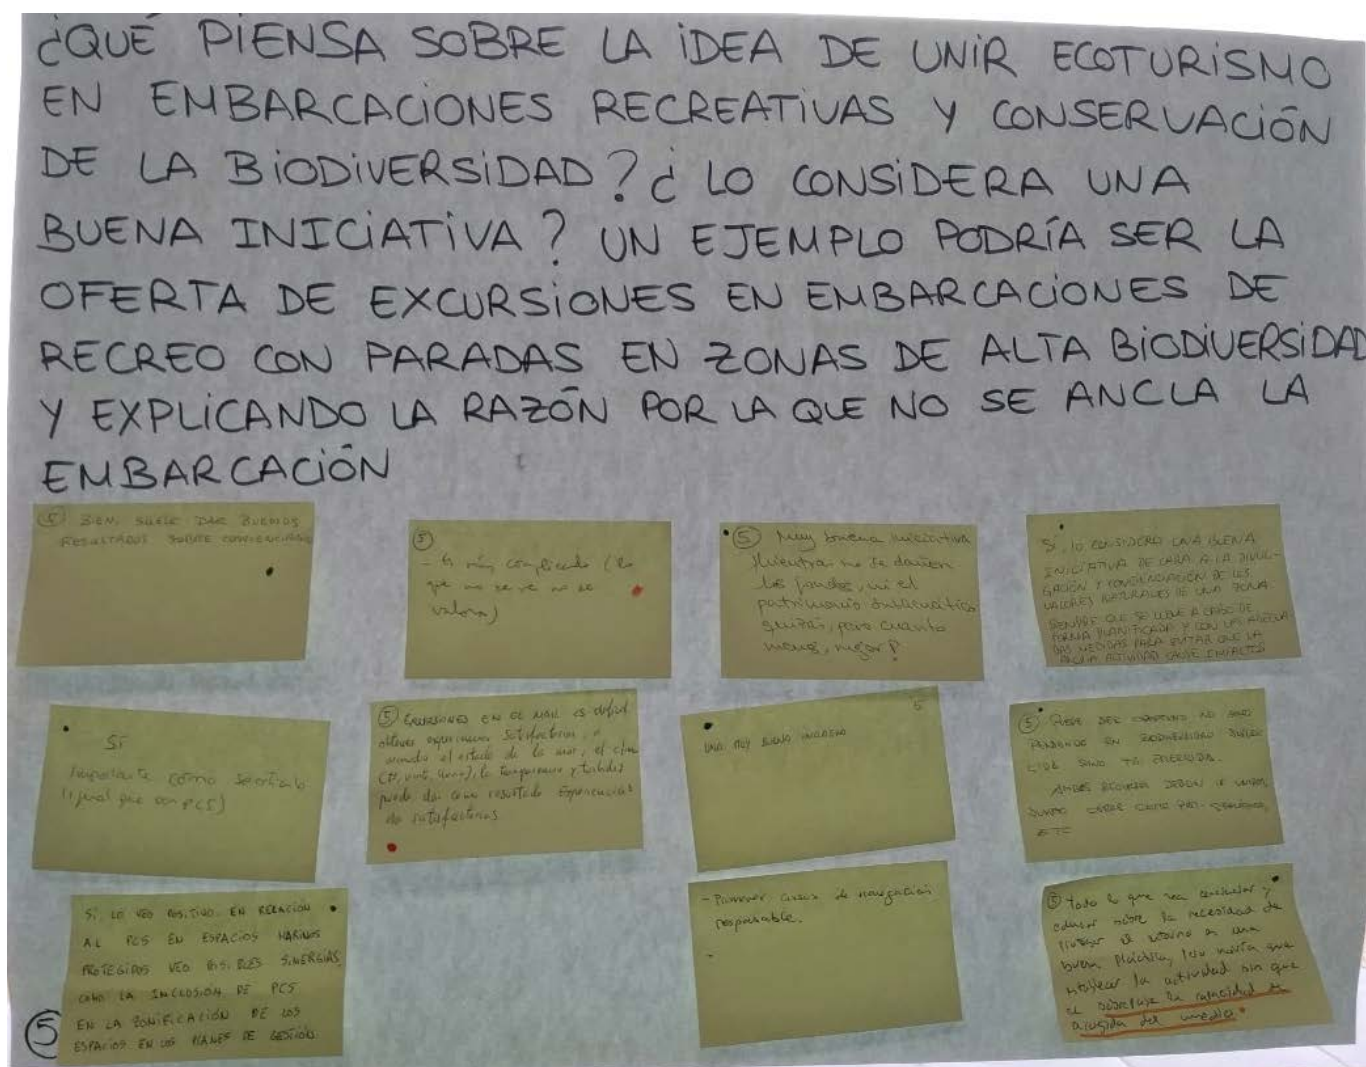 ¿QUÉ PIENSA SOBRE LA IDEA DE UNIR ECOTURISMO
EN EMBARCACIONES RECREATIVAS Y CONSERVACIÓN
DE LA BIODIVERSIDAD? ¿LO CONSIDERA UNA
BUENA INICIATIVA? UN EJEMPLO PODRÍA SER LA
OFERTA DE EXCURSIONES EN EMBARCACIONES DE
RECREO CON PARADAS EN ZONAS DE ALTA BIODIVERSIDAD
Y EXPLICANDO LA RAZÓN POR LA QUE NO SE ANCLA LA
EMBARCACIÓN
⑤ BIEN, SUELE DAR BUENOS
RESULTADOS SOBRE
⑤
- Es más complicado (lo
que no se ve no se
valora)
⑤ Muy buena iniciativa
Mientras no se dañen
los fondos, ni el
patrimonio subacuático
quizás, pero cuanto
menos, mejor
SÍ, LO CONSIDERO UNA BUENA
INICIATIVA DE CARA A LA DIVUL-
GACIÓN Y CONCIENCIACIÓN DE LOS
VALORES NATURALES DE UNA ZONA.
SIEMPRE QUE SE LLEVE A CABO DE
FORMA PLANIFICADA Y CON LAS ADECUA-
DAS MEDIDAS PARA EVITAR QUE LA
ACTIVIDAD CAUSE IMPACTO
SÍ
Importante como
(igual que con PCS)
⑤ EXCURSIONES EN EL MAR ES difícil
obtener experiencias satisfactorias,
el estado de la mar, el clima
la transparencia y turbidez
puede dar como resultado experiencias
no satisfactorias
5
UNA MUY BUENA
⑤ PUEDE SER OBJETIVO NO SOLO
EN BIODIVERSIDAD
SINO
AMBOS RECURSOS DEBEN IR UNIDOS,
COMO
ETC
SÍ, LO VEO POSITIVO. EN RELACIÓN
AL PCS EN ESPACIOS MARINOS
PROTEGIDOS VEO POSIBLES SINERGIAS
COMO LA INCLUSIÓN DE PCS
EN LA ZONIFICACIÓN DE LOS
ESPACIOS EN LOS PLANES DE GESTIÓN.
⑤
- Promover cursos de navegación
responsable.
-
⑤ Todo lo que sea concienciar y
educar sobre la necesidad de
proteger el entorno es una
buena práctica, pero habría que
establecer la actividad sin que
se sobrepase la capacidad de
acogida del medio.